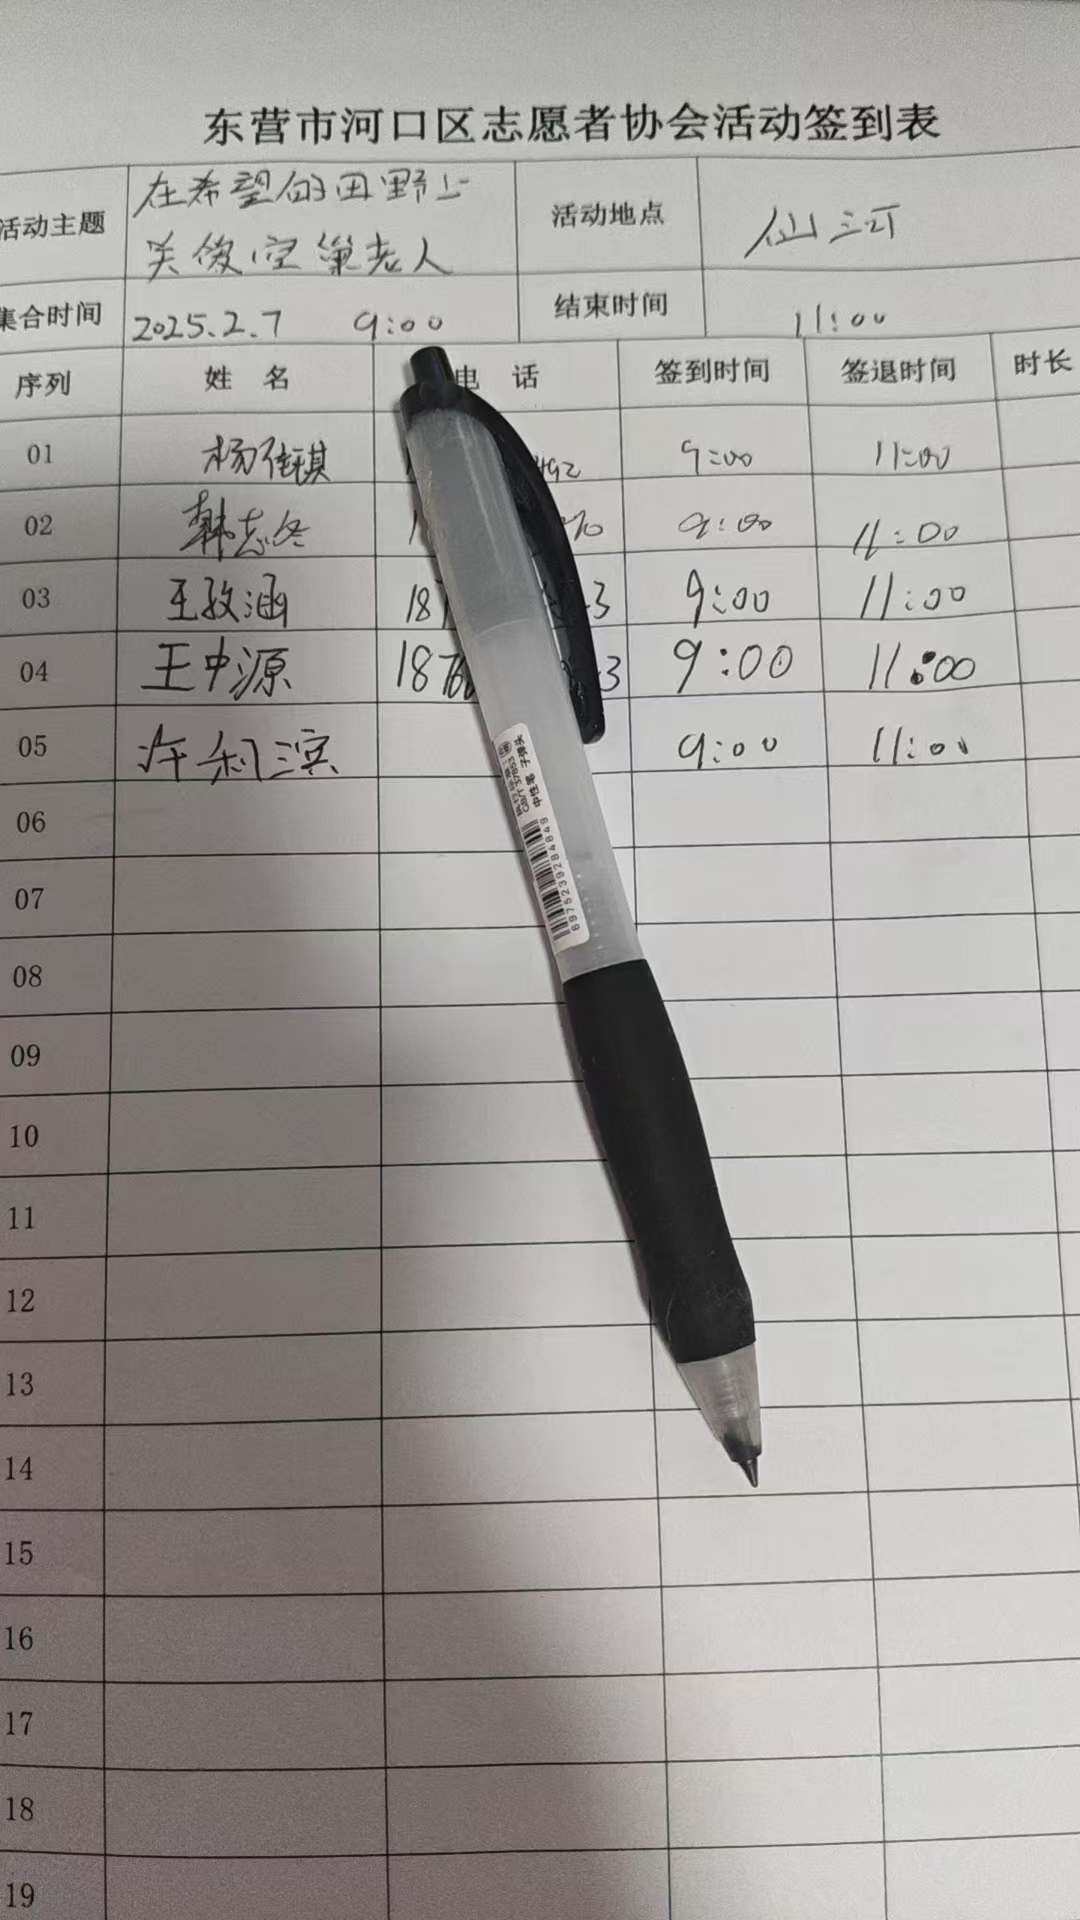 东营市河口区志愿者协会活动签到表
活动主题 在希望的田野上 活动地点 仙河
关爱空巢老人
集合时间 2025.2.7 9:00 结束时间 11:00
序列 姓 名 电 话 签到时间 签退时间 时长
01 杨佳琪 492 9:00 11:00
02 韩志冬 70 9:00 11:00
03 王孜涵 187 3 9:00 11:00
04 王中源 1876 3 9:00 11:00
05 许利滨 9:00 11:00
06
07
08
09
10
11
12
13
14
15
16
17
18
19
GB/T 37853
中性笔 子弹头
6975239284849